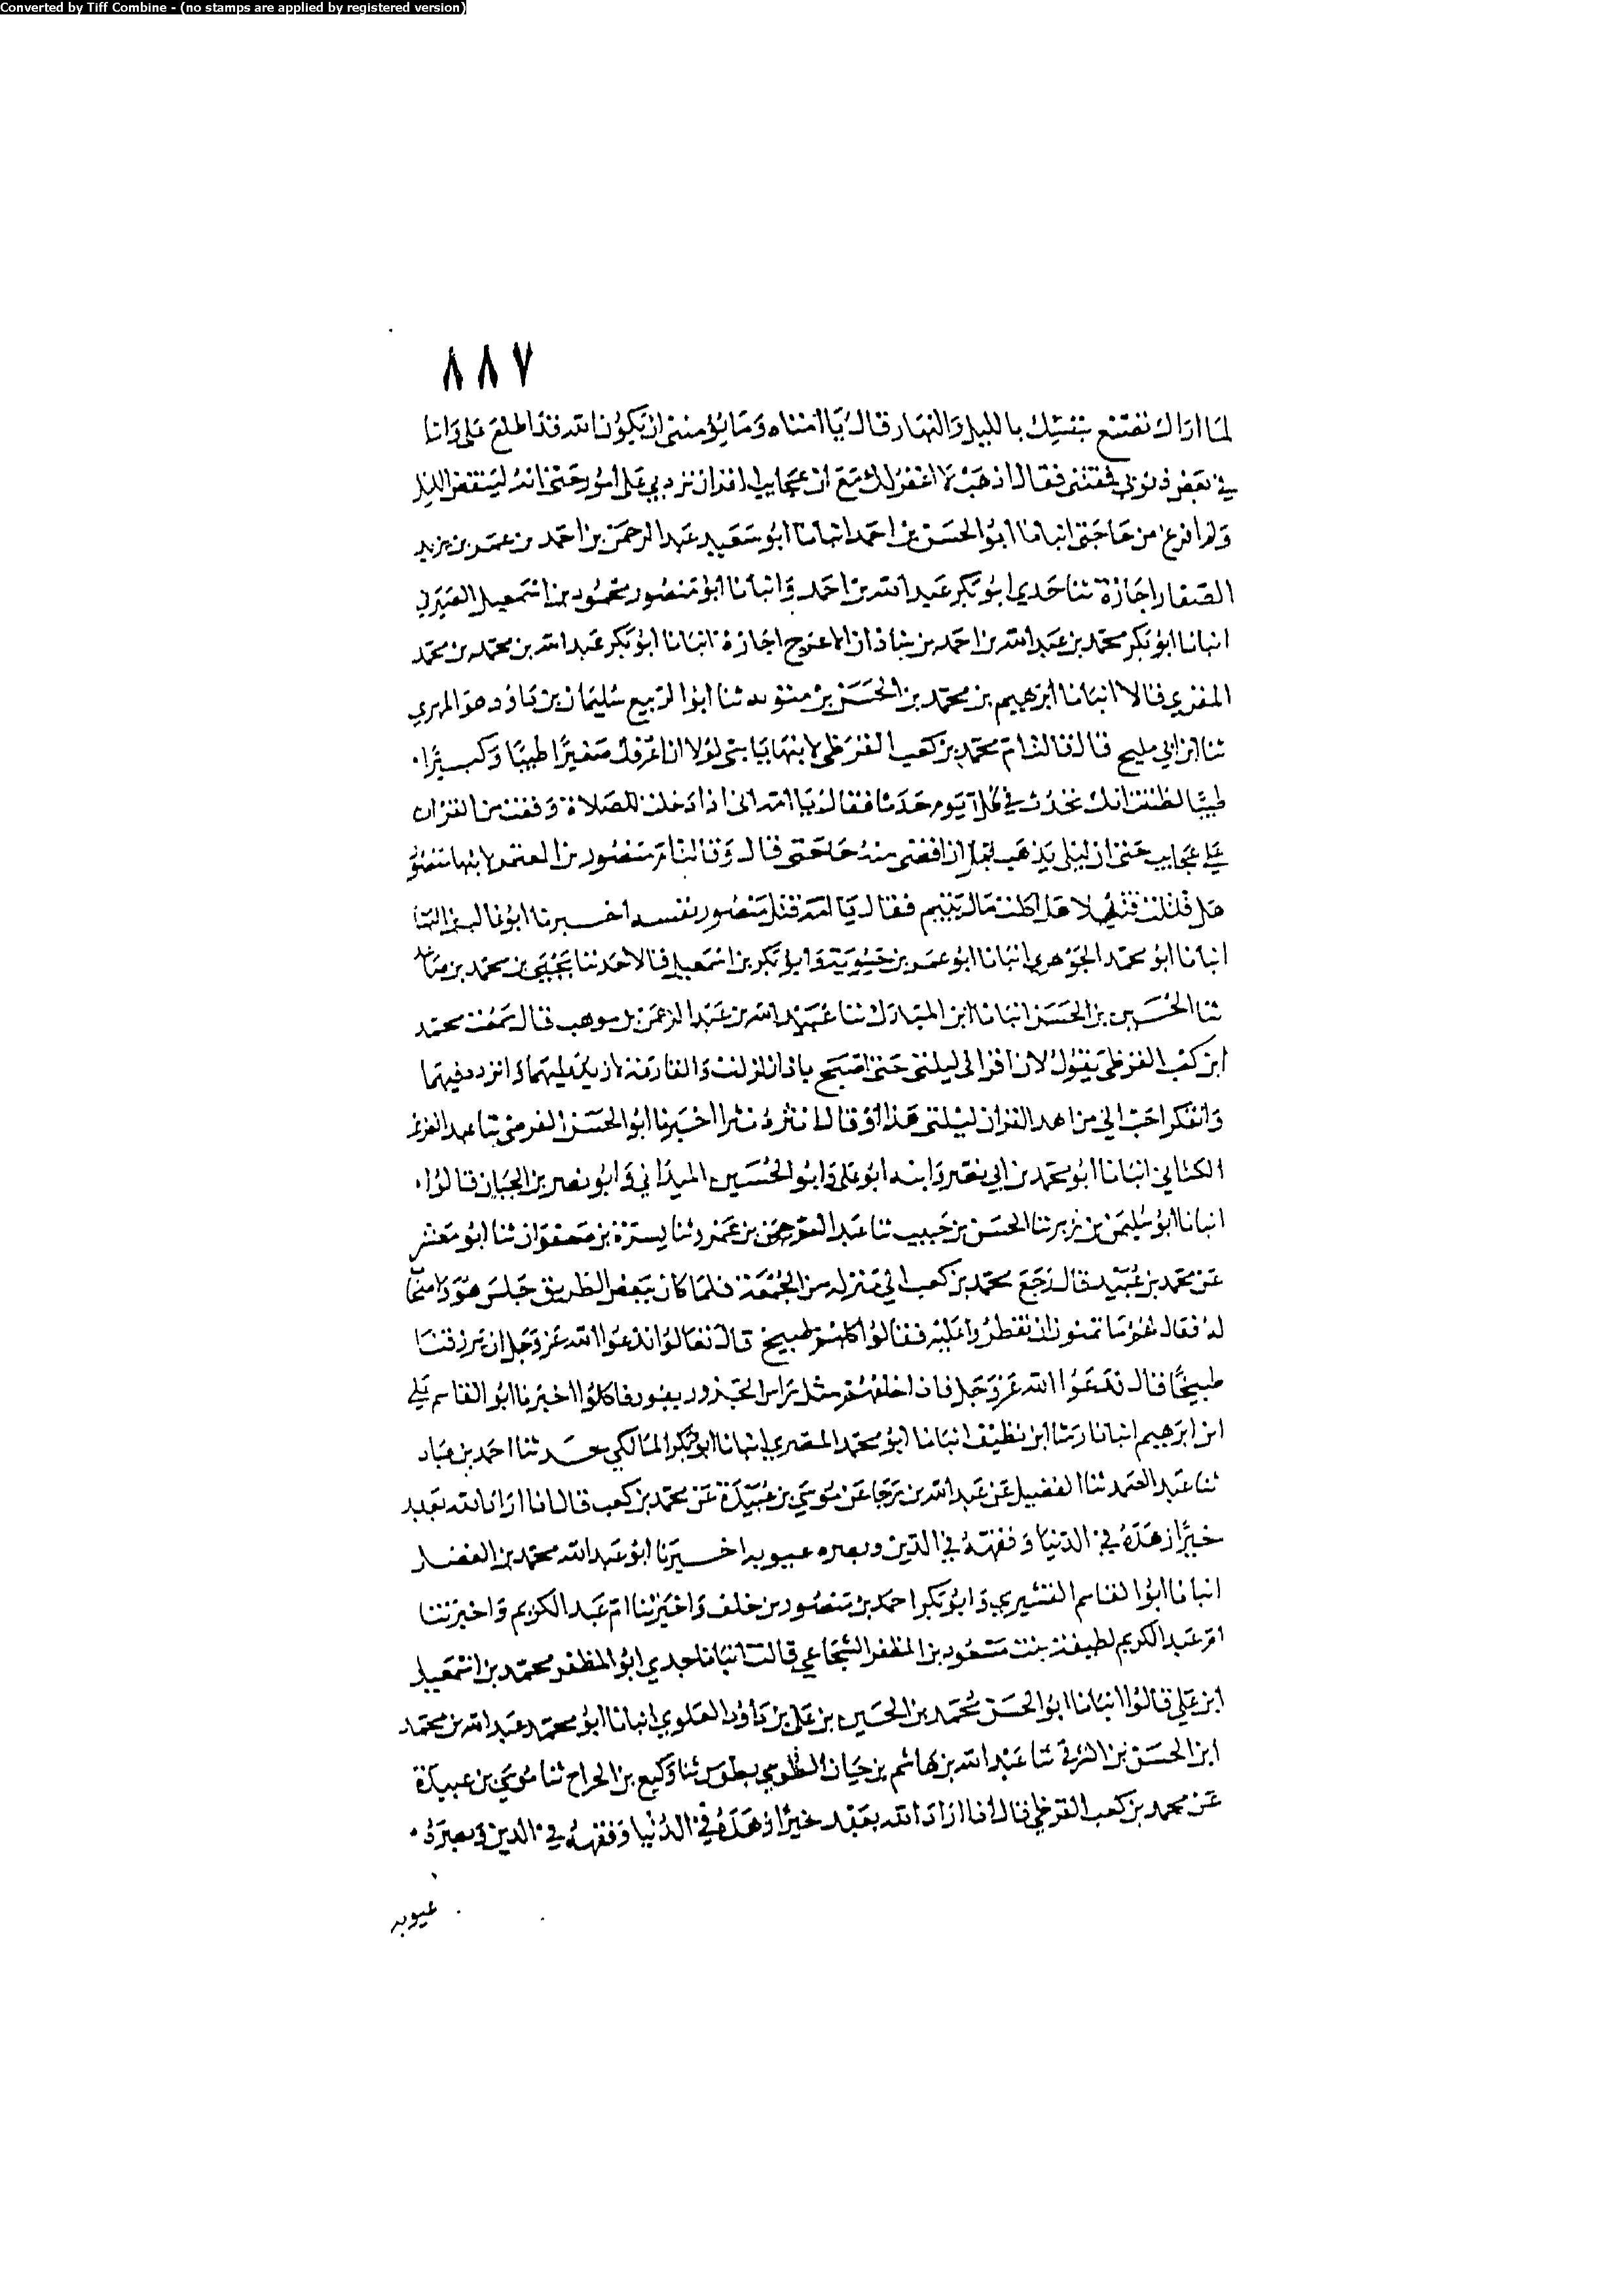 Converted by Tiff Combine - (no stamps are applied by registered version)
٨٨٧
لما اراك تصنع بنفسك بالليل والنهار قال يا امتاه وما يؤمنني ان يكون الله قد اطلع علي وانا
في بعض ذنوبي فمقتني فقال اذهب لا اغفر لك مع ان عجايب القران ترد بي على امور حتى انه لينقضي الليل
ولم افرغ من حاجتي انبانا ابو الحسن بن احمد انبانا ابو سعيد عبد الرحمن بن احمد بن عمر بن يزيد
الصفار اجازة ثنا جدي ابو بكر عبد الله بن احمد وانبانا ابو منصور محمود بن اسمعيل الصيرفي
انبانا ابو بكر محمد بن عبد الله بن احمد بن شاذان الاعرج اجازة انبانا ابو بكر عبد الله بن محمد بن محمد
المقري قالا انبانا ابرهيم بن محمد بن الحسن بن متويه ثنا ابو الربيع سليمان بن داود هو المهري
ثنا ابن ابي مليح قال قالت ام محمد بن كعب القرظي لابنها يا بني لولا اني اعرفك صغيرا طيبا وكبيرا
طيبا لظننت انك تحدث في كل يوم حدثا فقال يا امه اني اذا دخلت للصلاة وقفت من القران
على عجايب حتى ان ليلي يذهب قبل ان اقضي منه حاجتي قال وقالت ام منصور بن المعتمر لابنها منصور
هل قتلت قتيلا هل اكلت مال يتيم فقال يا امه قتل منصور نفسه اخبرنا ابو غالب بن البنا
انبانا ابو محمد الجوهري انبانا ابو عمر بن حيويه وابو بكر بن اسمعيل قالا حدثنا يحيى بن محمد بن صاعد
ثنا الحسين بن الحسن انبانا ابن المبارك ثنا عبيد الله بن عبد الرحمن بن موهب قال سمعت محمد
ابن كعب القرظي يقول لان اقرا في ليلتي حتى اصبح باذا زلزلت والقارعة لا ازيد عليهما واتردد فيهما
واتفكر احب الي من اهذ القران ليلتي هذا او قال انثره نثرا اخبرنا ابو الحسن الفرضي ثنا عبد العزيز
الكتاني انبانا ابو محمد بن ابي نصر وابنه ابو علي وابو الحسين الميداني وابو نصر بن الجبان قالوا
انبانا ابو سليمن بن زبر ثنا الحسن بن حبيب ثنا عبد الرحمن بن عمرو ثنا يسرة بن صفوان ثنا ابو معشر
عن محمد بن عبيد قال رجع محمد بن كعب الى منزله من الجمعة فلما كان ببعض الطريق جلس هو واصحاب
له فقال لهم ما تمنون ان تفطروا عليه فقالوا كلهم طبيخ قال تعالوا ندعوا الله عز وجل ان يرزقنا
طبيخا قال فدعوا الله عز وجل فاذا خلفهم مثل راس الجزور يفور فاكلوا اخبرنا ابو القاسم علي
ابن ابرهيم انبانا رشا ابن نظيف انبانا ابو محمد المصري انبانا ابو بكر المالكي حدثنا احمد بن عباد
ثنا عبد الصمد ثنا الفضيل عن عبد الله بن رجا عن موسى بن عبيدة عن محمد بن كعب قال اذا اراد الله بعبد
خيرا زهده في الدنيا وفقهه في الدين وبصره عيوبه اخبرنا ابو عبد الله محمد بن الفضل
انبانا ابو القاسم القشيري وابو بكر احمد بن منصور بن خلف واخبرتنا ام عبد الكريم واخبرتنا
ام عبد الكريم لطيفة بنت مسعود بن المظفر الشجاعي قالت انبانا جدي ابو المظفر محمد بن اسمعيل
ابن علي قالوا انبانا ابو الحسن محمد بن الحسين بن علي بن داود العلوي انبانا ابو محمد عبد الله بن محمد
ابن الحسن بن الشرقي ثنا عبد الله بن هاشم بن حيان الطوسي بطوس ثنا وكيع بن الجراح ثنا موسى بن عبيدة
عن محمد بن كعب القرظي قال اذا اراد الله بعبد خيرا زهده في الدنيا وفقهه في الدين وبصره
عيوبه